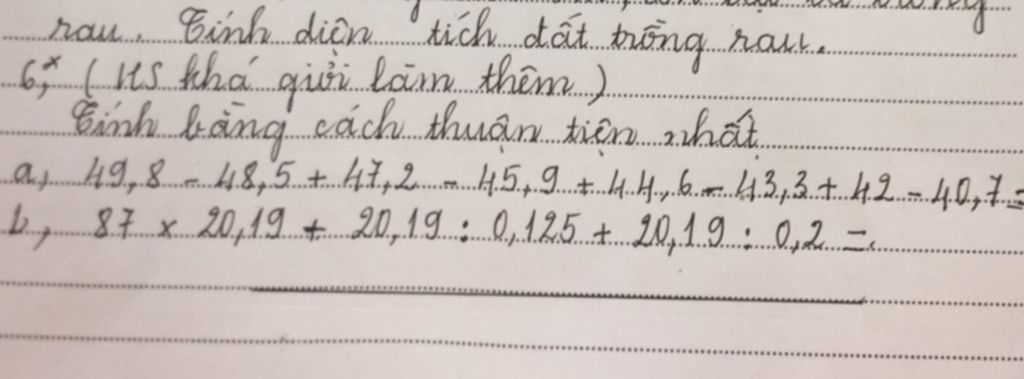 rau. Tính diện tích đất trồng rau.
6,* (HS khá giỏi làm thêm)
Tính bằng cách thuận tiện nhất
a, 49,8 - 48,5 + 47,2 - 45,9 + 44,6 - 43,3 + 42 - 40,7 =
b, 87 x 20,19 + 20,19 : 0,125 + 20,19 : 0,2 =